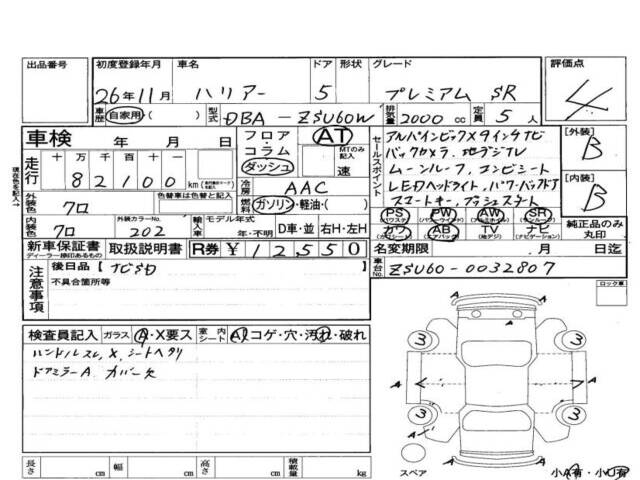 出品番号 初度登録年月 車名 ドア 形状 グレード 評価点
26年11月 ハリアー 5 プレミアム SR 4
車歴 自家用・( ) 型式 DBA-ZSU60W 排気量 2000cc 定員 5人
車検 年 月 日 フロア コラム ダッシュ AT MTのみ記入 速
走行 十 万 千 百 十 一
82100 km
冷房 AAC
外装色 クロ 色替車は色替前の色 燃料 ガソリン・軽油・( )
内装色 クロ 外装カラーNo. 202 輸入車 モデル年式 年・不明 D車・並 右H・左H
新車保証書 ディーラー捺印あるもの 取扱説明書 R券 ¥12550
セールスポイント
アルパインビックXタインチナビ
バックカメラ、地デジTV
ムーンルーフ、コンビシート
LEDヘッドライト、パワーバックドア
スマートキー、プッシュスタート
PS PW AW SR
カワ AB TV ナビ
(エアバッグ) (地デジ) (ナビゲーション)
[外装] B
[内装] B
純正品のみ丸印
名変期限 月 日迄
車台No. ZSU60-0032807
注意事項 後日品 [ナビSD ]
不具合箇所等
ロック車
検査員記入 ガラス A・X要ス 室内シート A・コゲ・穴・汚れ・破れ
ハンドルスレ、X、シートヘタリ
ドアミラーA カバー欠
A A
3 3
A A A
3 3
A A
スペア 小A有・小U有
長さ cm 幅 cm 高さ cm 積載量 kg
現在色を記入